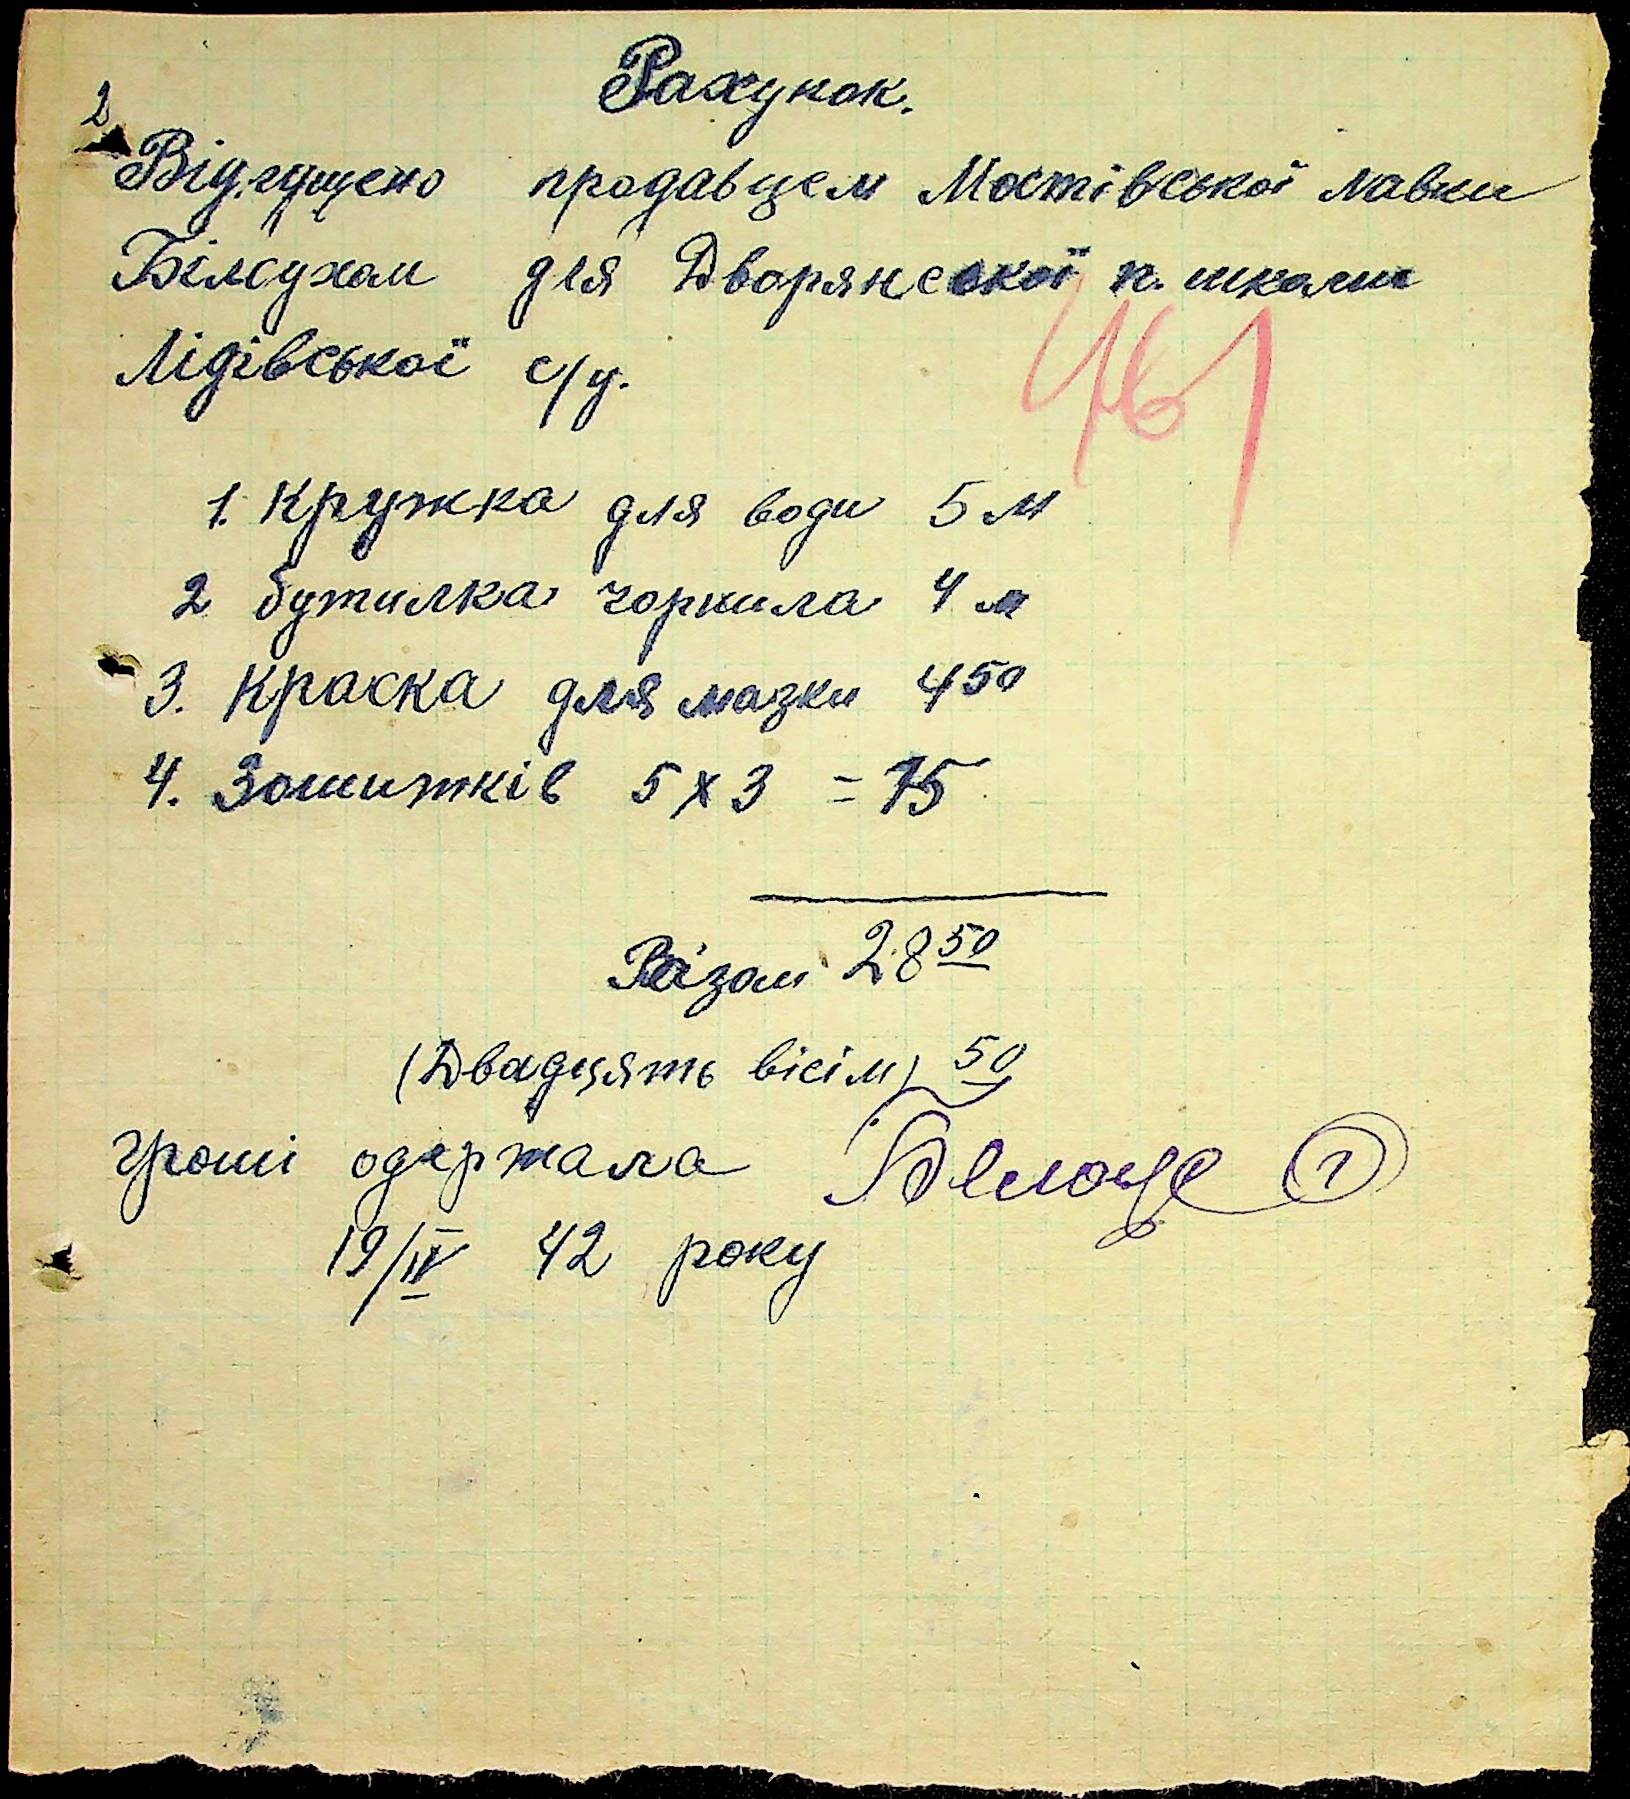 2
Рахунок.
Відпущено продавцем Мостівської лавки
Білсухам для Дворянської п. школи
Лідівської с/у.
461
1. Кружка для води 5 м
2 бутилка чорнила 4 м
3. Краска для мазки 4 50
4. Зошитків 5 х 3 = 15
Разом 28 50
(Двадцять вісім) 50
Гроші одержала
1
19/IV 42 року